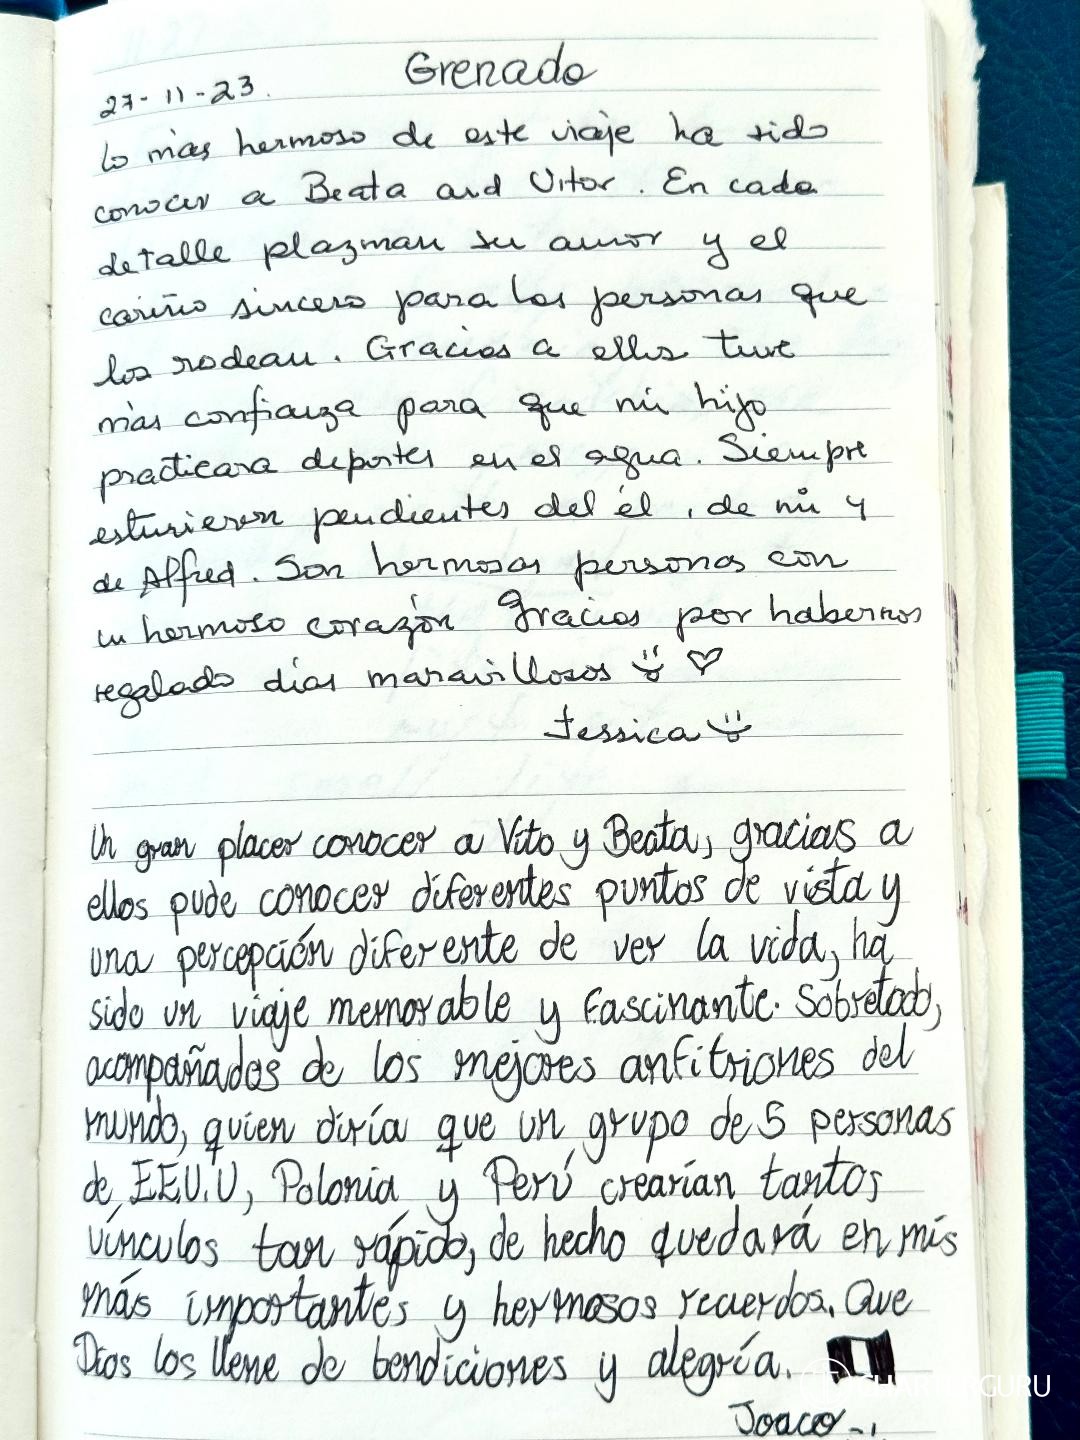 Grenada
27-11-23.
Lo más hermoso de este viaje ha sido
conocer a Beata and Vitor. En cada
detalle plazman su amor y el
cariño sincero para las personas que
los rodean. Gracias a ellos tuve
más confianza para que mi hijo
practicara deportes en el agua. Siempre
estuvieron pendientes del él, de mi y
de Alfred. Son hermosas personas con
un hermoso corazón Gracias por habernos
regalado días maravillosos
Jessica
Un gran placer conocer a Vito y Beata, gracias a
ellos pude conocer diferentes puntos de vista y
una percepción diferente de ver la vida, ha
sido un viaje memorable y fascinante. Sobretodo,
acompañados de los mejores anfitriones del
mundo, quien diría que un grupo de 5 personas
de EE.U.U, Polonia y Perú crearían tantos
vínculos tan rápido, de hecho quedará en mis
más importantes y hermosos recuerdos. Que
Dios los llene de bendiciones y alegría.
GURU
Joaco